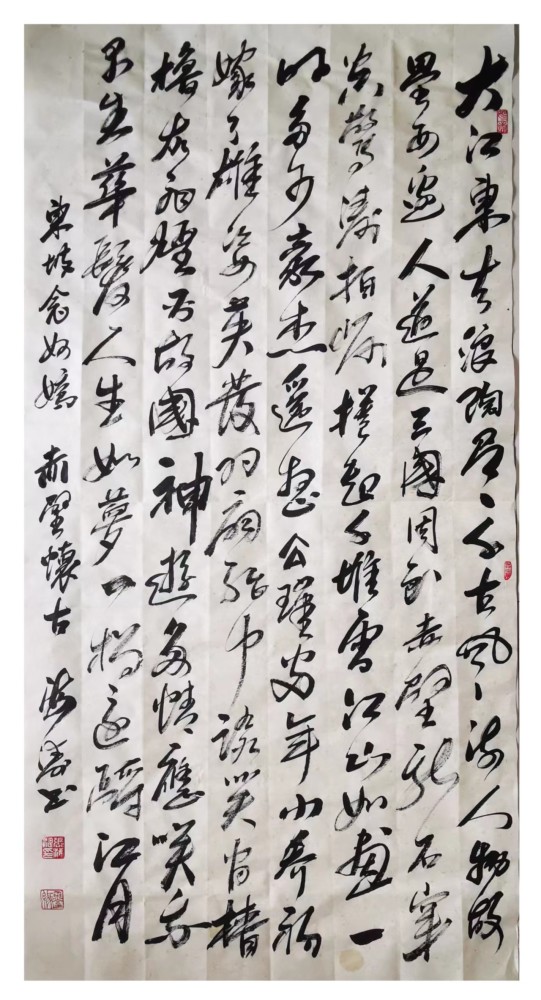 大江東去浪陶尽、千古風、流人物故
壘西邊人道是三國周郎赤壁亂石穿
空驚濤拍岸捲起千堆雪江山如畫一
時多少豪杰遥想公瑾當年小喬初
嫁了雄姿英發羽扇綸巾談笑間檣
櫓灰飛煙滅故國神遊多情應笑我
早生華髮人生如夢一樽還酹江月
東坡念奴嬌 赤壁懷古 海濤書